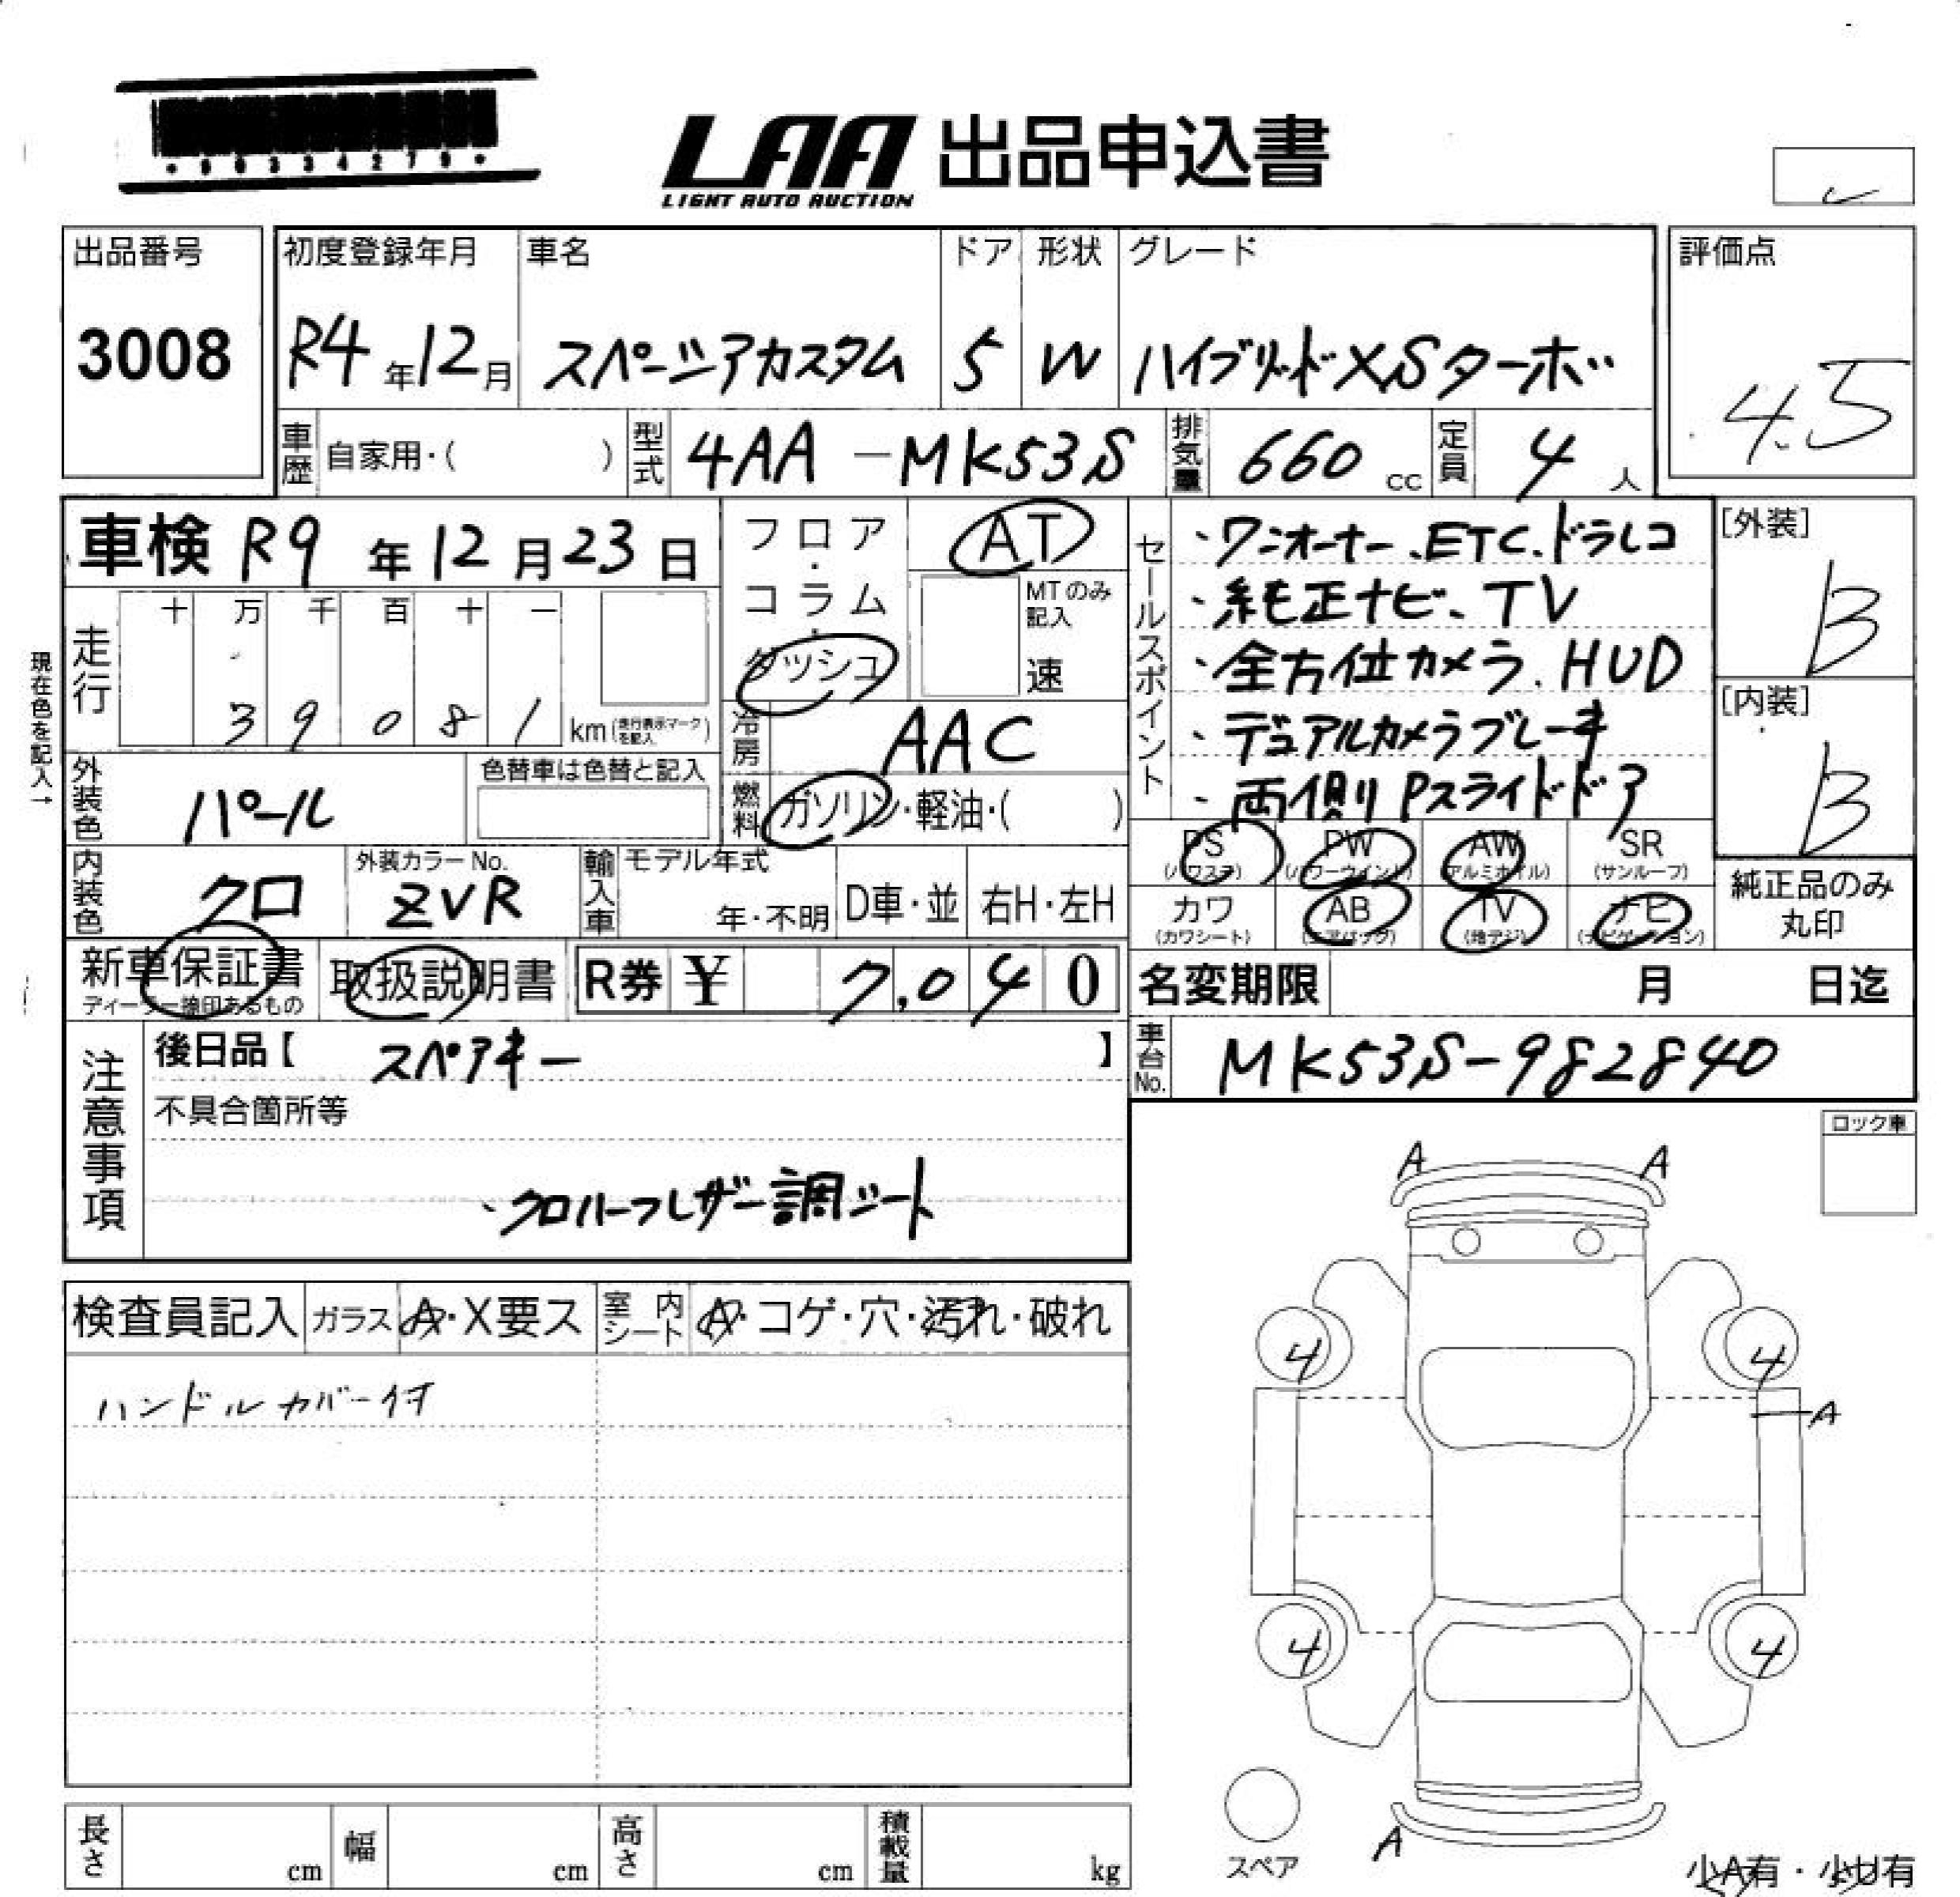 LAA 出品申込書
LIGHT AUTO AUCTION
出品番号
3008
初度登録年月
R4年12月
車名
スペーシアカスタム
ドア
5
形状
W
グレード
ハイブリッドXSターボ
評価点
4.5
車歴 自家用・( )
型式 4AA-MK53S
排気量 660 cc
定員 4 人
車検 R9年12月23日
フロア・コラム・ダッシュ
AT
MTのみ記入
速
セールスポイント
・ワンオーナー、ETC、ドラレコ
・純正ナビ、TV
・全方位カメラ、HUD
・デュアルカメラブレーキ
・両側Pスライドドア
[外装]
B
[内装]
B
現在色を記入→
走行
十 万 千 百 十 一
3 9 0 8 1 km (走行表示マークを記入)
冷房 AAC
外装色 パール
色替車は色替と記入
燃料 ガソリン・軽油・( )
PS (パワステ)
PW (パワーウインド)
AW (アルミホイル)
SR (サンルーフ)
カワ (カワシート)
AB (エアバッグ)
TV (地デジ)
ナビ (ナビゲーション)
純正品のみ丸印
内装色 クロ
外装カラーNo. ZVR
輸入車
モデル年式
年・不明
D車・並
右H・左H
新車保証書
ディーラー捺印あるもの
取扱説明書
R券 ¥ 7,040
名変期限 月 日迄
注意事項
後日品【 スペアキー 】
不具合箇所等
・クロハーフレザー調シート
車台No. MK53S-982840
ロック車
検査員記入
ガラス A・X要ス
室内シート A・コゲ・穴・汚れ・破れ
ハンドルカバー付
A A
4 4
A
4 4
A
スペア
小A有・小U有
長さ cm
幅 cm
高さ cm
積載量 kg